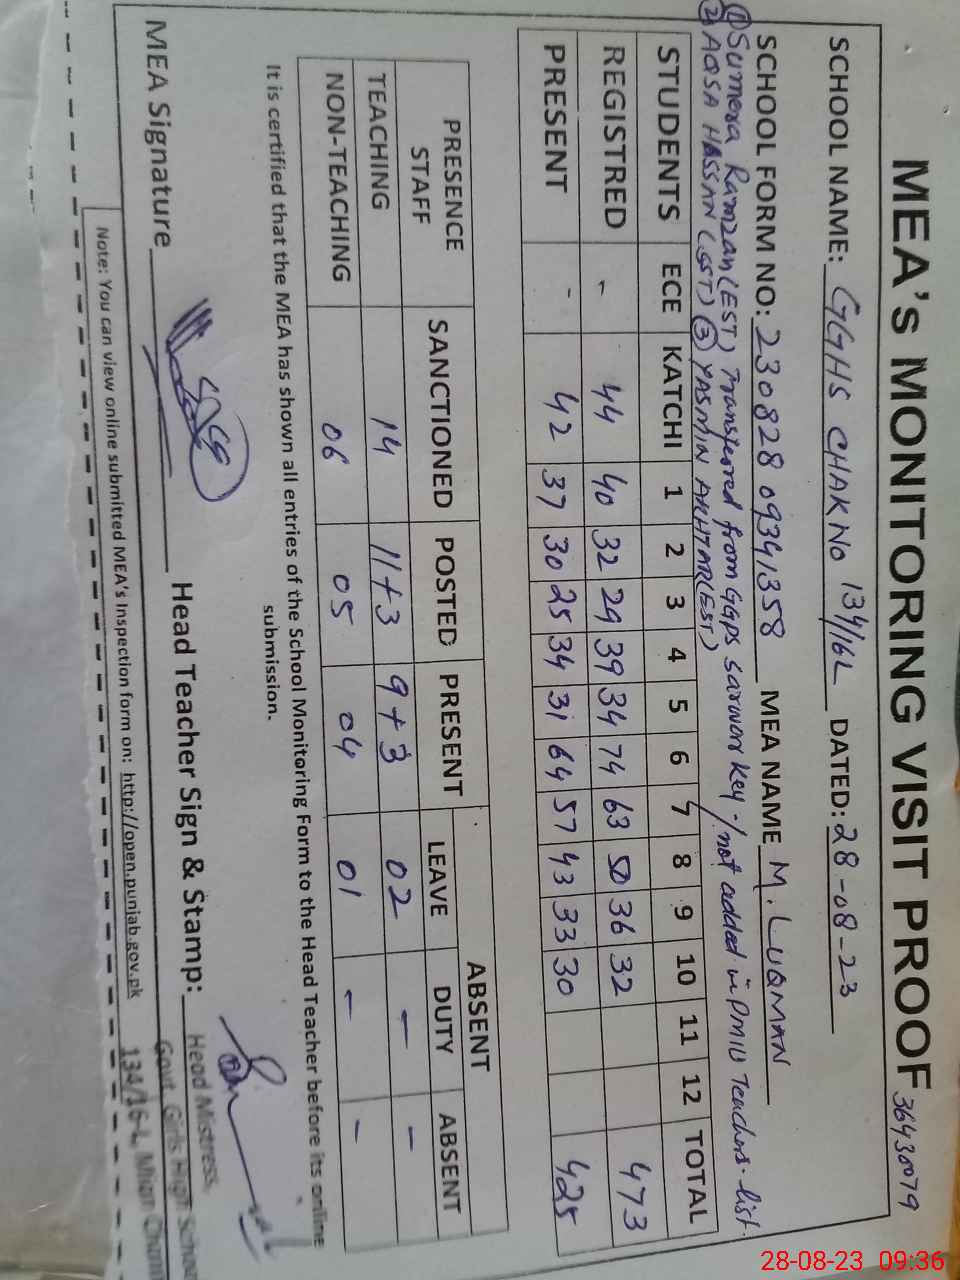 MEA's MONITORING VISIT PROOF 36430079
SCHOOL NAME: GGHS CHAK NO 134/16L DATED: 28-08-23
SCHOOL FORM NO: 230828 09341358 MEA NAME M. LUQMAN
① Sumera Ramzan (EST) Transfered from GGPS sarwar key / not added in PMIU Teachers list.
② AQSA HASSAN (SST) ③ YASMIN AKHTAR (EST)
STUDENTS ECE KATCHI 1 2 3 4 5 6 7 8 9 10 11 12 TOTAL
REGISTRED - 44 40 32 29 39 34 74 63 50 36 32 473
PRESENT - 42 37 30 25 34 31 64 57 43 33 30 425
PRESENCE STAFF SANCTIONED POSTED PRESENT ABSENT
LEAVE DUTY ABSENT
TEACHING 14 11+3 9+3 02 - -
NON-TEACHING 06 05 04 01 - -
It is certified that the MEA has shown all entries of the School Monitoring Form to the Head Teacher before its online
submission.
MEA Signature Head Teacher Sign & Stamp:
Head Mistress,
Govt. Girls High School
134/16-L, Mian Chann
Note: You can view online submitted MEA's Inspection form on: http://open.punjab.gov.pk
28-08-23 09:36